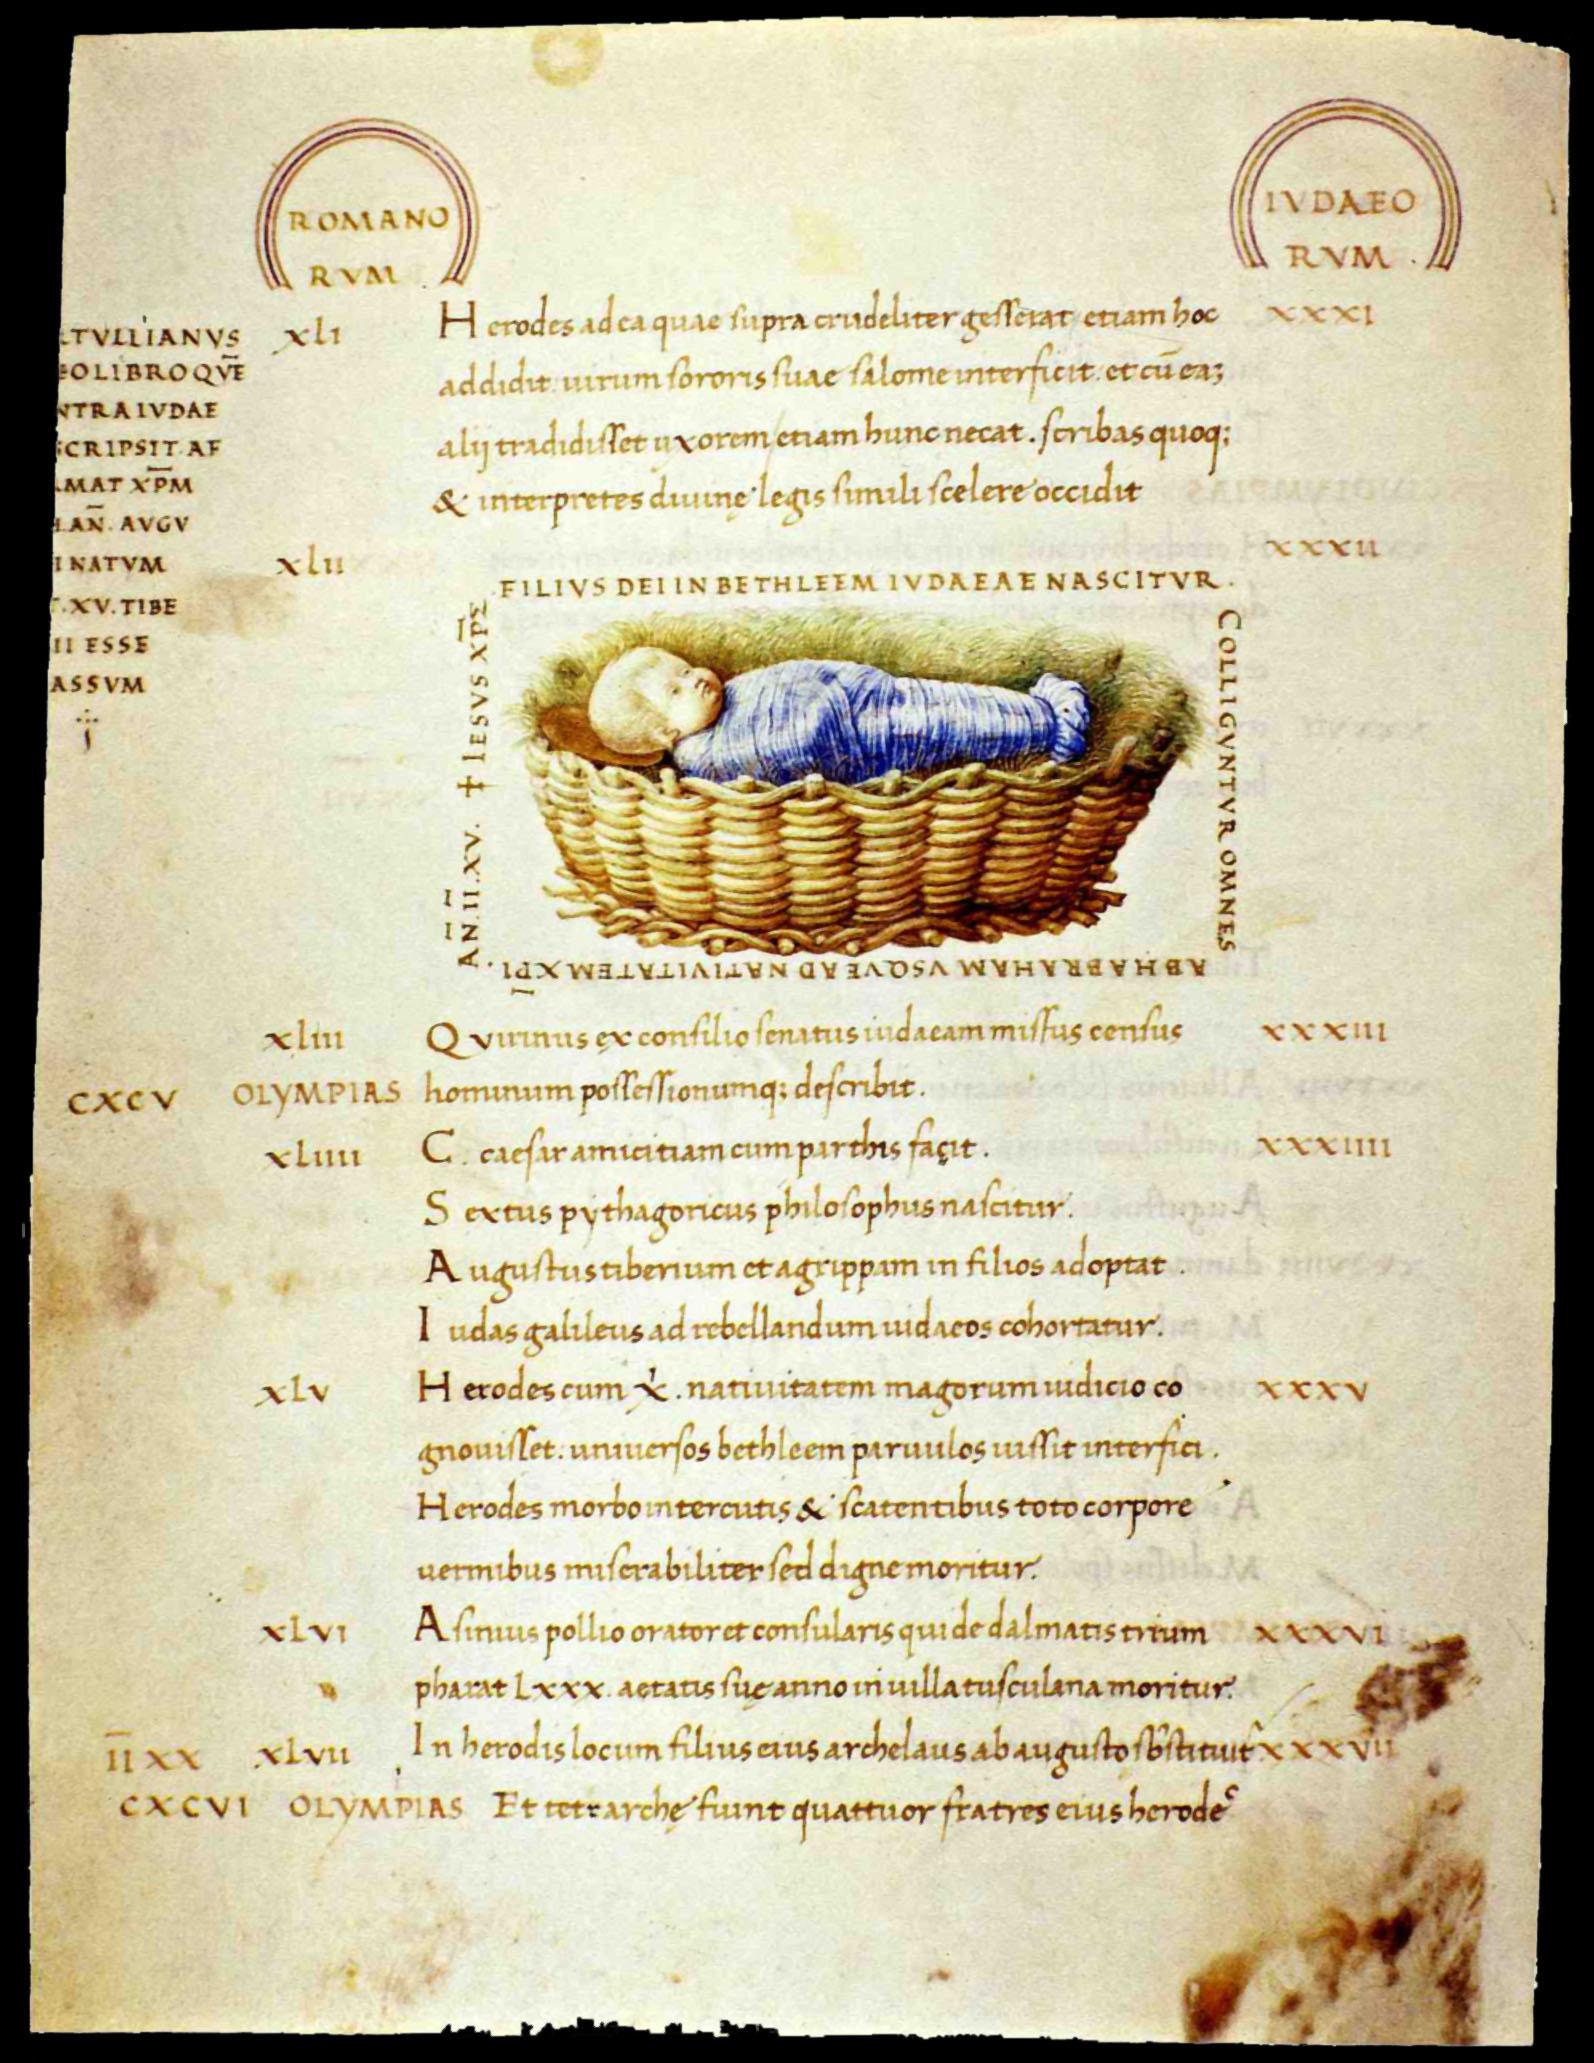 ROMANO
RVM
IVDAEO
RVM
TVLLIANVS
OLIBRO QVĒ
NTRA IVDAE
SCRIPSIT AF
MAT XP̄M
AN̄. AVGV
NATVM
XV. TIBE
II ESSE
ASSVM
XLI Herodes ad ea quae supra crudeliter gesserat etiam hoc XXXI
addidit. uirum sororis suae salome interficit. et cū eaꝫ
alij tradidisset uxorem/etiam hunc necat. scribas quoq;
& interpretes diuinę legis simili scelere occidit
XLII XXXII
FILIVS DEI IN BETHLEEM IVDAEAE NASCITVR.
COLLIGVNTVR OMNES
AB HABRAHAM VSQVE AD NATIVITATEM XP̄I.
AN̄. ĪĪ. XV. † IESVS XP̄Σ
XLIII Qvirinus ex consilio senatus iudaeam missus census XXXIII
CXCV OLYMPIAS hominum possessionumq; describit.
XLIIII C. caesar amicitiam cum parthis facit. XXXIIII
Sextus pythagoricus philosophus nascitur.
Augustus tiberium et agrippam in filios adoptat.
Iudas galileus ad rebellandum iudaeos cohortatur.
XLV Herodes cum x̀. natiuitatem magorum iudicio co XXXV
gnouisset. uniuersos bethleem paruulos iussit interfici.
Herodes morbo intercutis & scatentibus toto corpore
uermibus miserabiliter sed digne moritur.
XLVI Asinius pollio orator et consularis qui de dalmatis trium XXXVI
pharat LXXX. aetatis suę anno in uilla tusculana moritur.
ĪĪ XX XLVII In herodis locum filius eius archelaus ab augusto sb̄stituit͛ XXXVII
CXCVI OLYMPIAS Et tetrarchę fiunt quattuor fratres eius herodeˢ